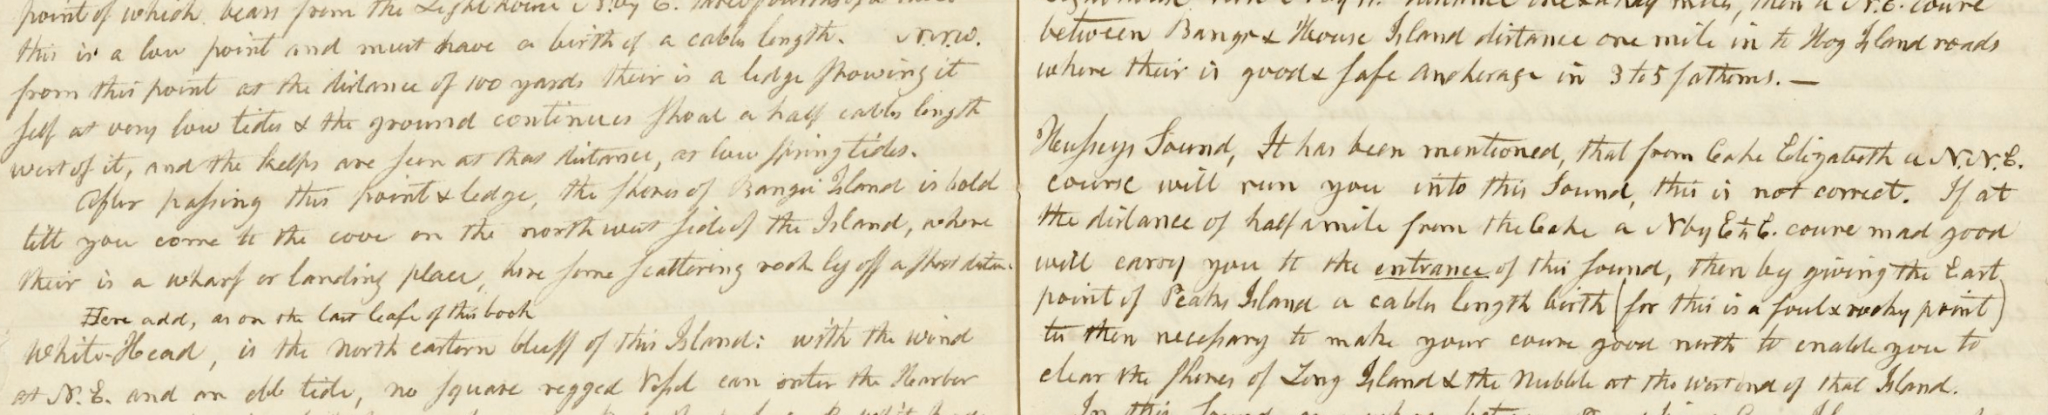 point of which bears from the Light house N. by E.
this is a low point and must have a birth of a cables length. N.N.W.
from this point at the distance of 100 yards their is a ledge showing it
self at very low tides & the ground continues shoal a half cables length
west of it, and the kelps are seen at that distance, at low spring tides.
After passing this point & ledge, the shores of Bangs Island is bold
till you come to the cove on the north west side of the Island, where
their is a wharf or landing place, here some scattering rocks ly off a short distance
Here add, as on the last leafe of this book
White-Head, is the north eastern bluff of this Island: with the wind
at N.E. and an ebb tide, no square regged Vessel can enter the Harbor
one & a half miles, then a N.E. course
between Bangs & House Island distance one mile in to Hog Island roads
where their is good & safe anchorage in 3 to 5 fathoms. —
Husseys Sound, It has been mentioned, that from Cape Elizabeth a N.N.E.
course will run you into this Sound, this is not correct. If at
the distance of half a mile from the Cape a N by E ½ E. course mad good
will carry you to the entrance of this sound, then by giving the East
point of Peaks Island a cables length birth (for this is a foul & rocky point)
tis then necessary to make your course good north to enable you to
clear the shores of Long Island & the Nubble at the west end of that Island.
In this Sound